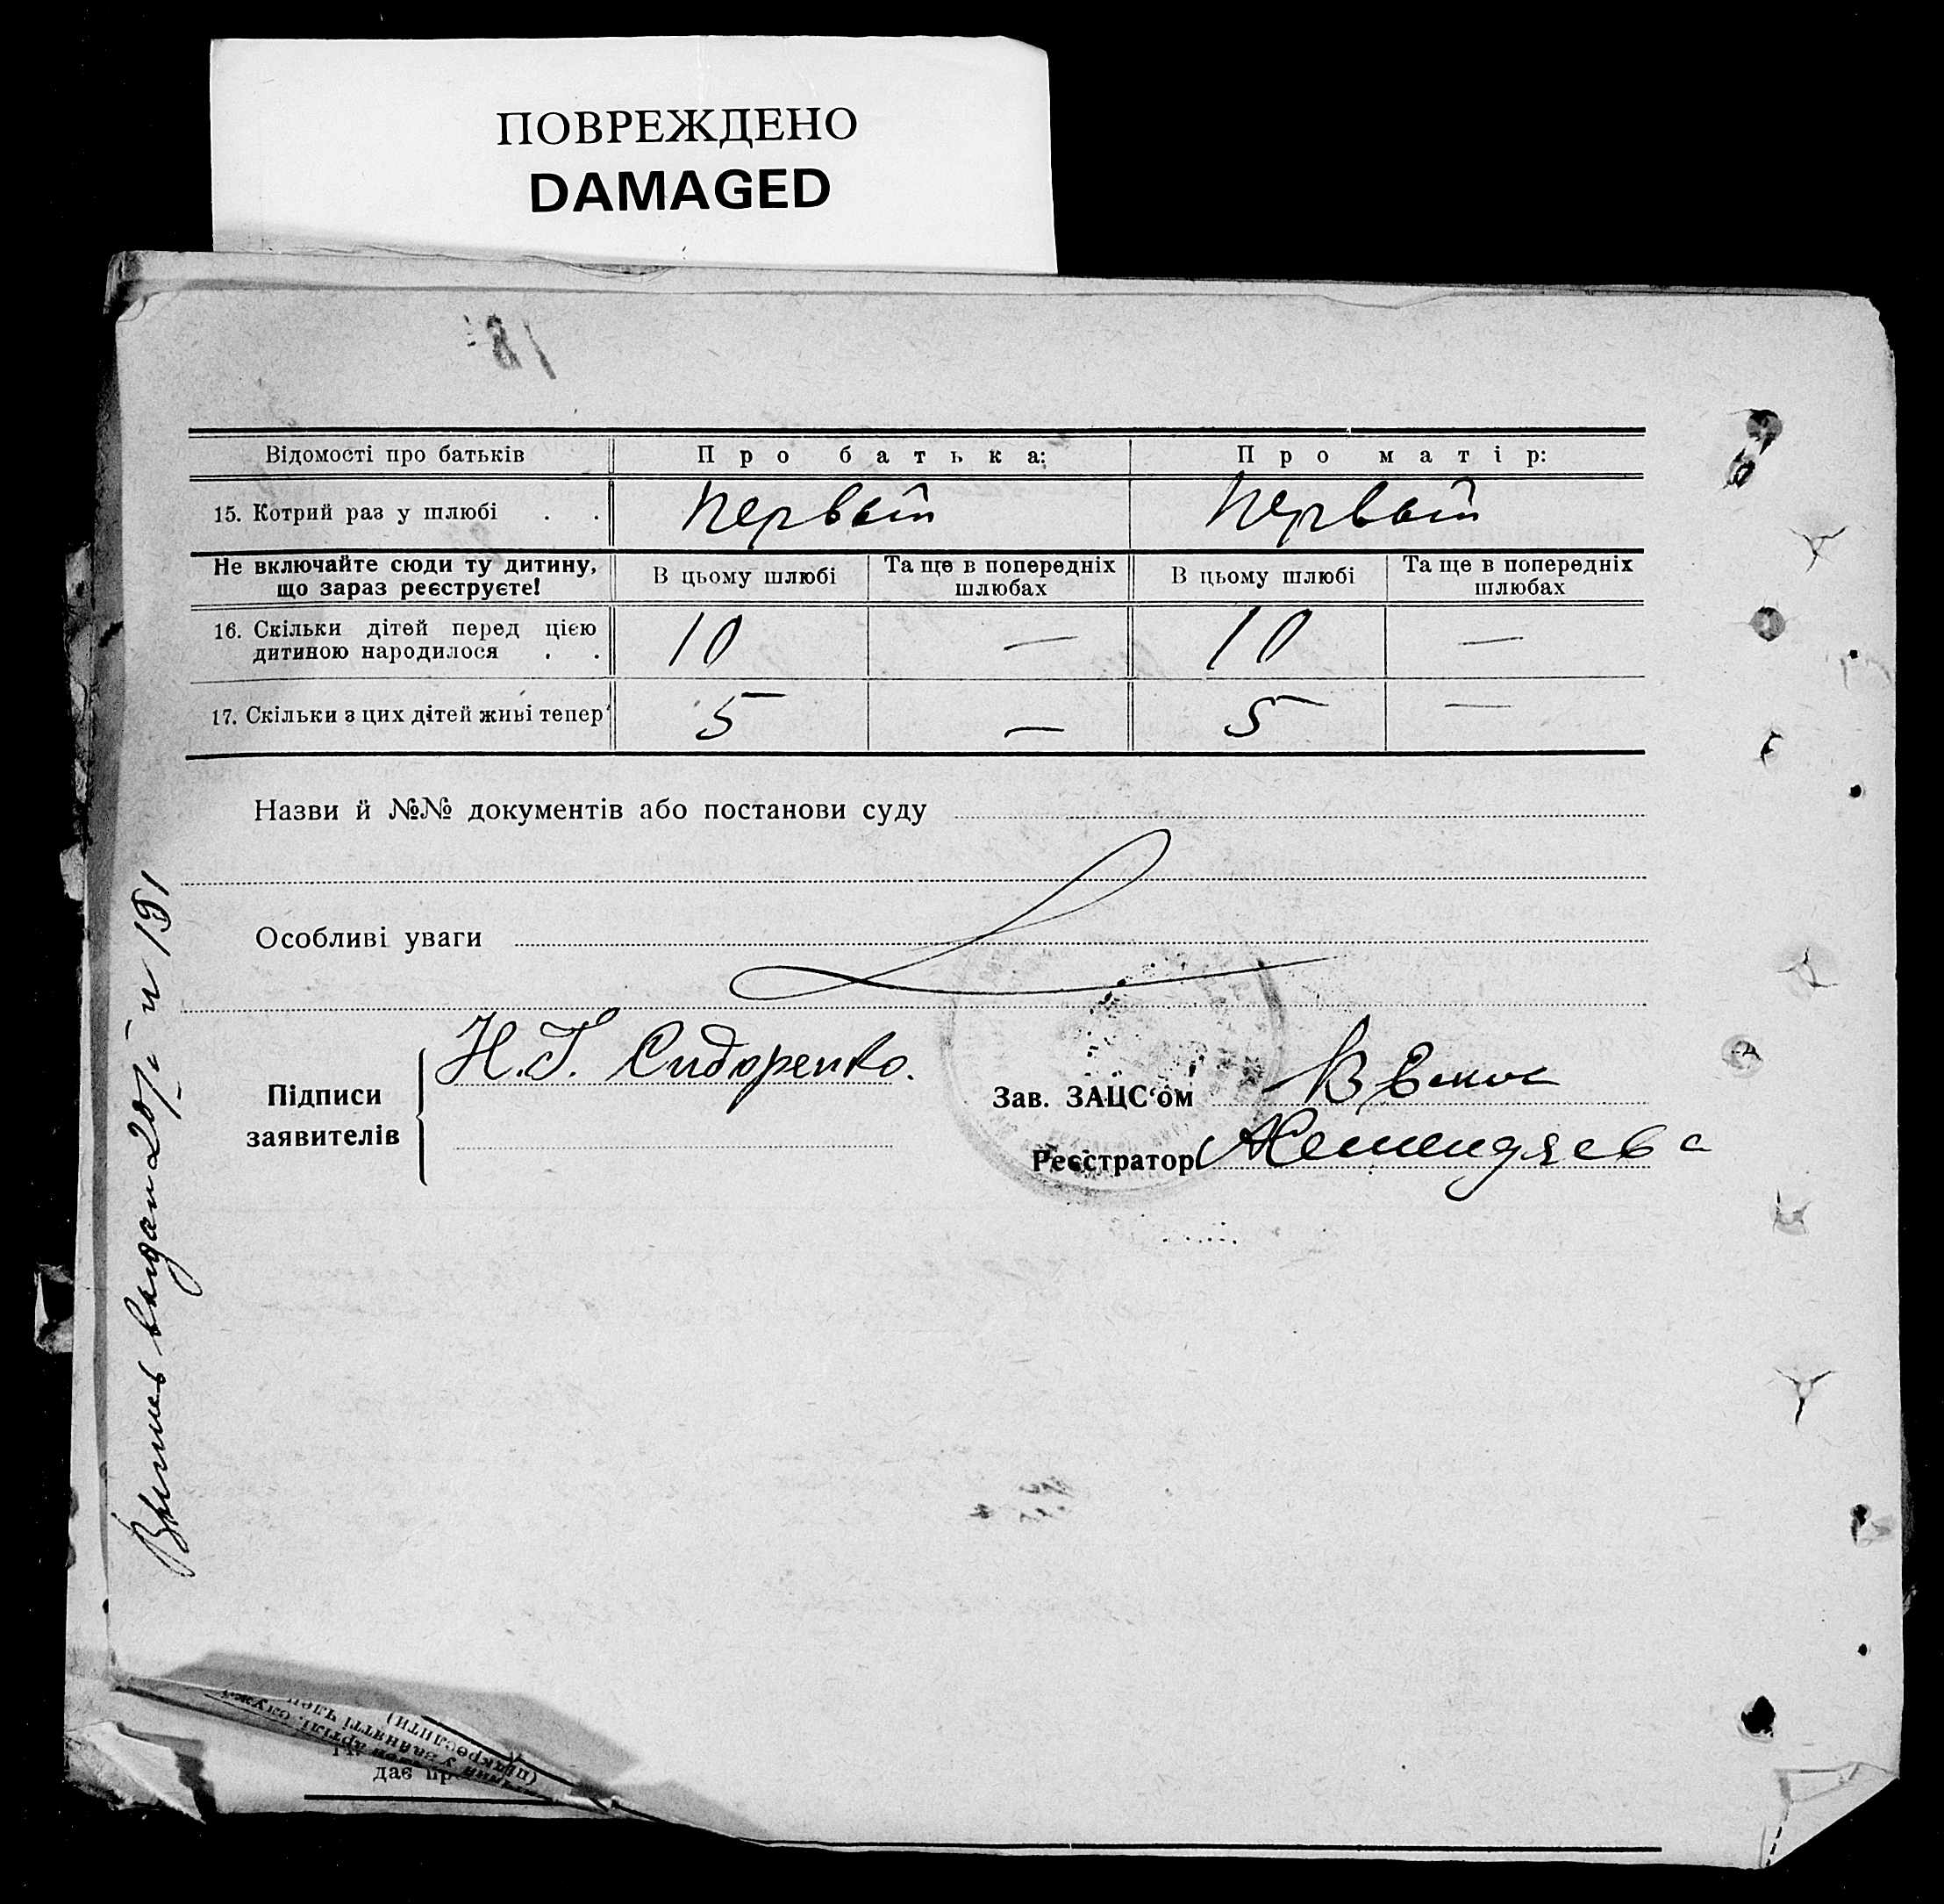 ПОВРЕЖДЕНО
DAMAGED
Відомості про батьків
Про батька:
Про матір:
15. Котрий раз у шлюбі . .
первый
первый
Не включайте сюди ту дитину,
що зараз реєструєте!
В цьому шлюбі
Та ще в попередніх
шлюбах
В цьому шлюбі
Та ще в попередніх
шлюбах
16. Скільки дітей перед цією
дитиною народилося . .
10
—
10
—
17. Скільки з цих дітей живі тепер
5
—
5
—
Назви й №№ документів або постанови суду
Особливі уваги
Підписи
заявителів
Н.Г. Сидоренко.
Зав. ЗАЦС'ом
Реєстратор
выдана 20/
дає